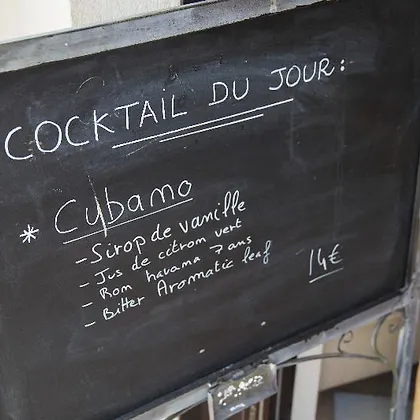 COCKTAIL DU JOUR:
* Cybamo
- Sirop de vanille
- Jus de citrom vert
- Rom havama 7 ans
- Bitter Aromatic leaf
14€